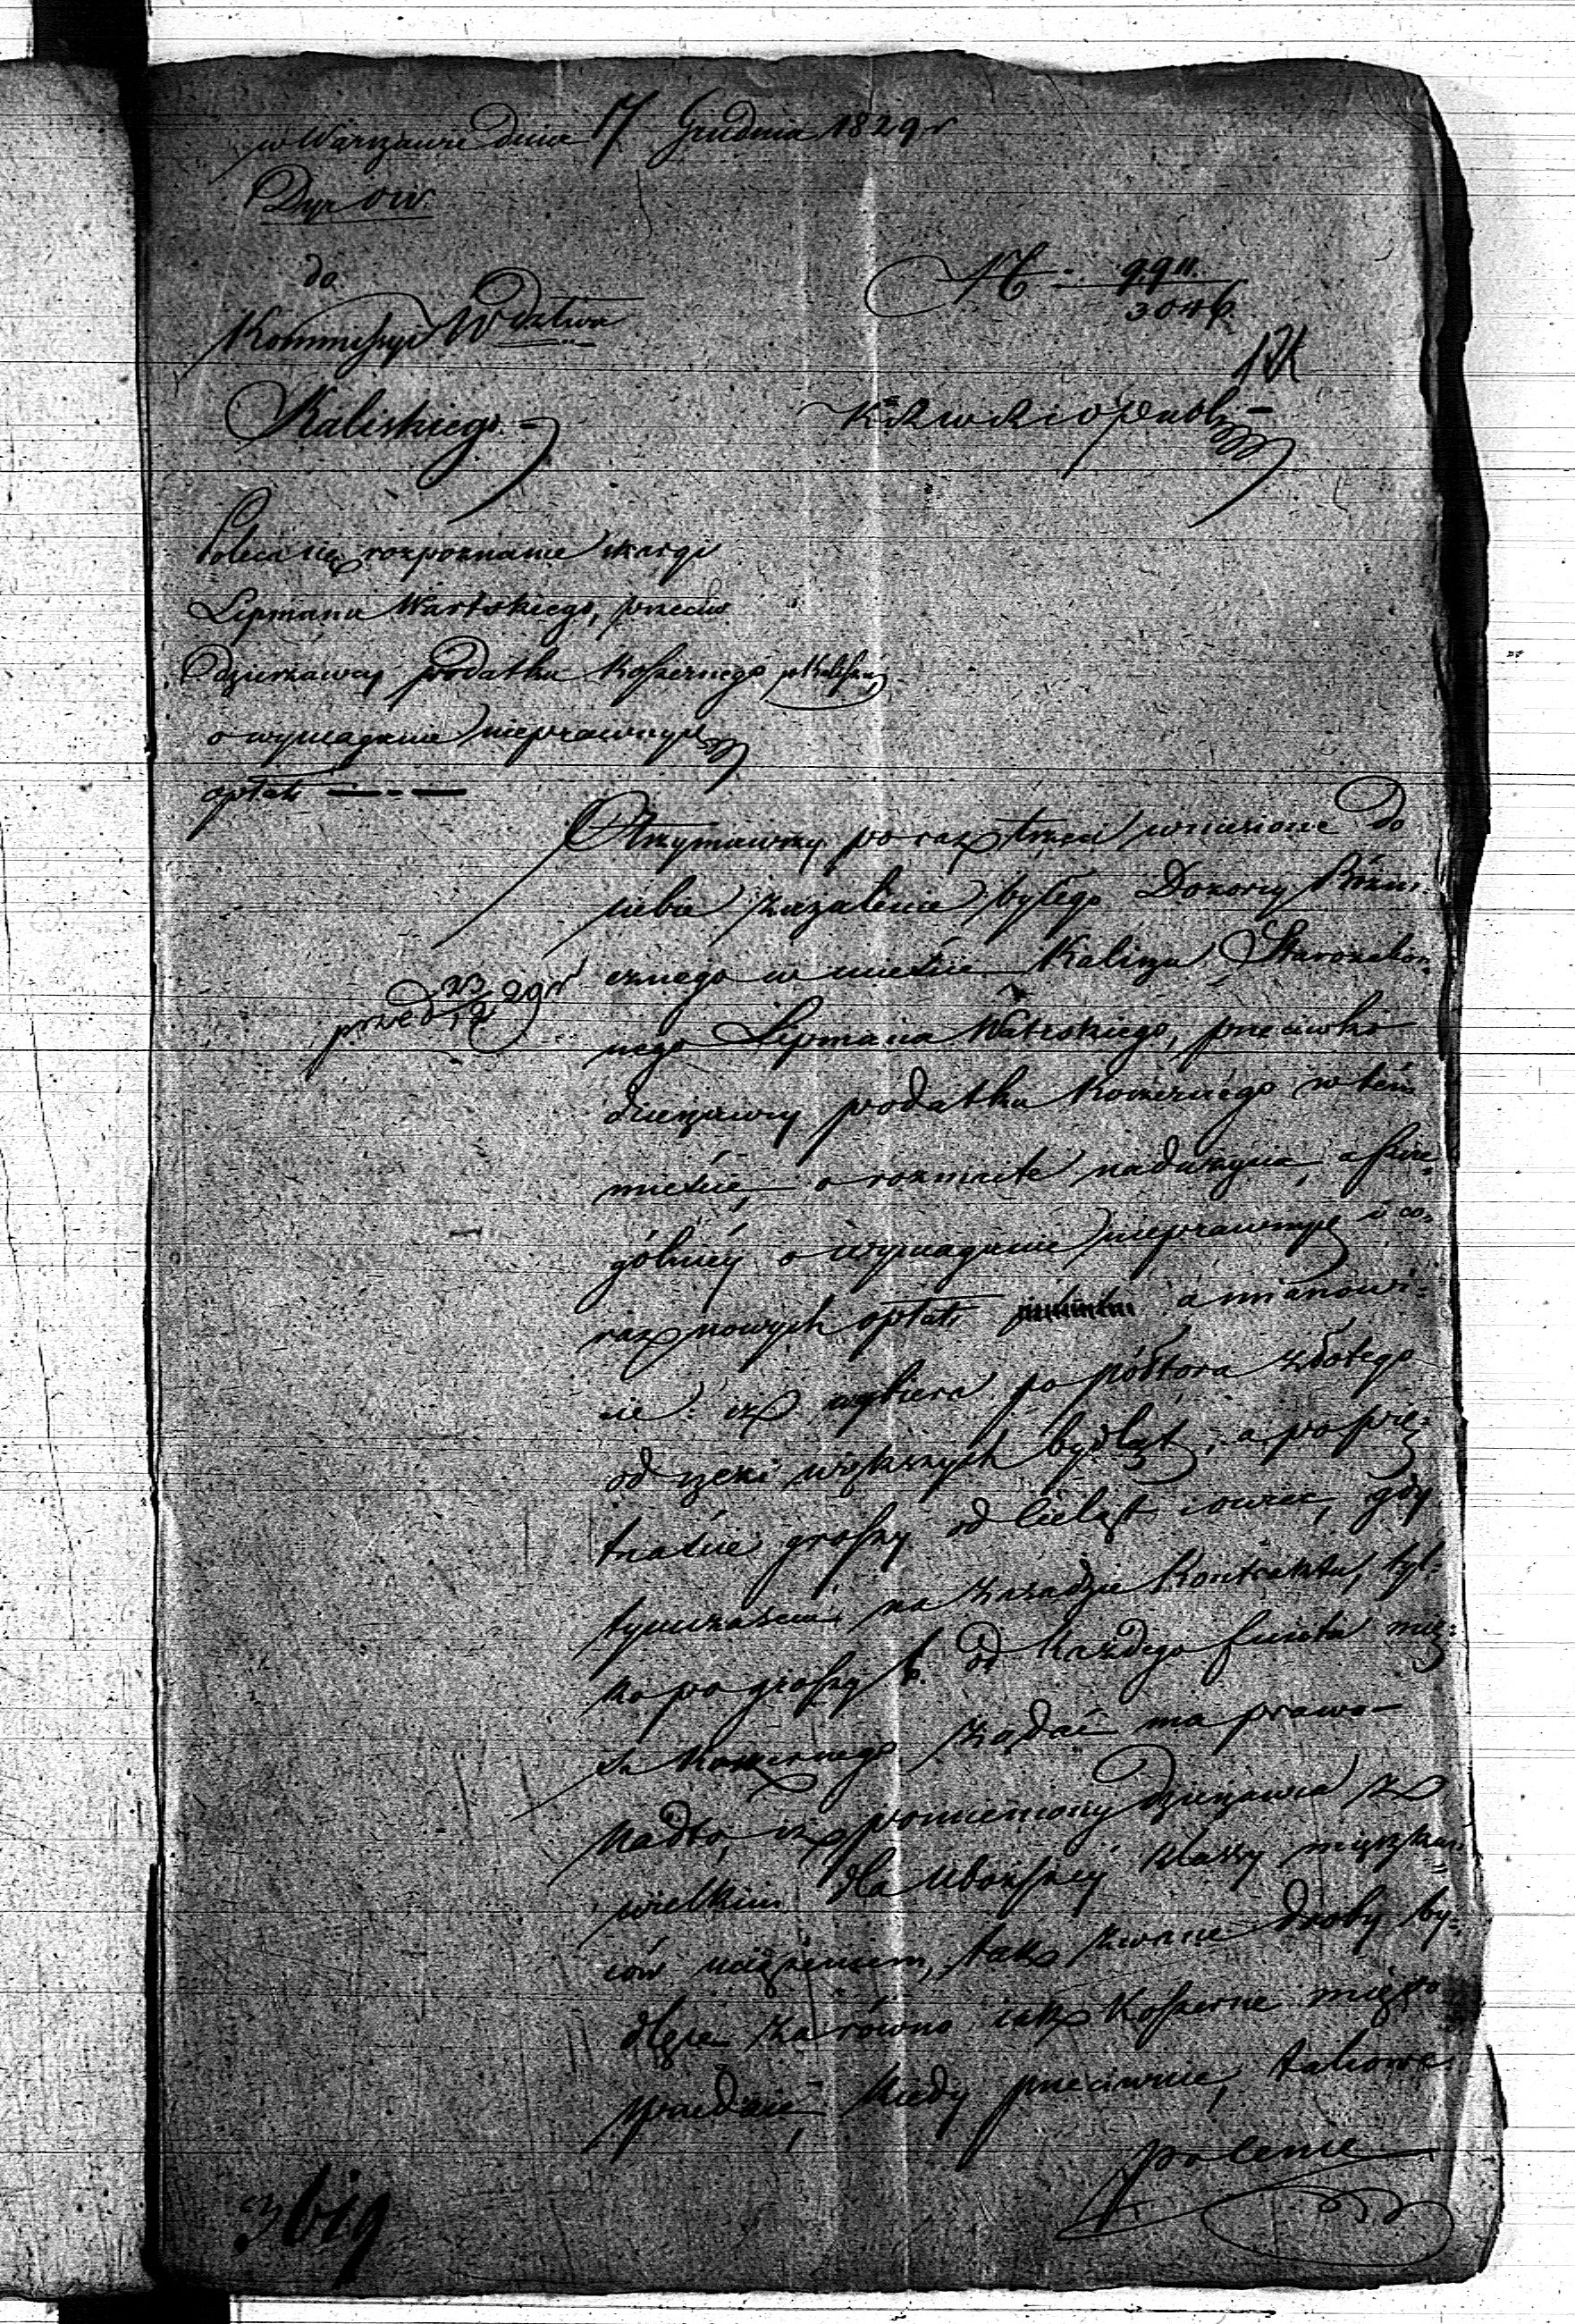 w Warszawie dnia 17 Grudnia 1829 r
Dyr OW.
do
Kommissyi Wdztwa
Kaliskiego.
N 9911.
3046
Poleca się rozpoznanie skargi
Lipmana Wartskiego, przeciw
Dzierżawcy podatku koszernego w Kaliszu
o wymaganie nieprawnych
opłat
Otrzymawszy po raz trzeci wniesione do
siebie zażalenie byłego Dozorcy Bóżni-
cznego w mieście Kaliszu, Starozakon-
nego Lipmana Wartskiego, przeciwko
dzierżawcy podatku koszernego w tém
mieście, o rozmaite nadużycia, a szcze-
gólniéy o wymaganie nieprawnych i co-
raz nowych opłat a mianowi-
cie: iż wybiera po półtora złotego
od sztuki większych bydląt, a po pię-
tnaście groszy od cieląt i owiec, gdy
tymczasem na zasadzie kontraktu, tyl-
ko po groszy 6. od każdego funta mię-
sa koszernego żądać ma prawo
Nadto, iż pomieniony dzierżawca z
wielkim dla uboższéy klassy mieszkań-
ców uciążeniem, tak zwane droby by-
dlęce zarówno iak koszerne mięso
sprzedaie, kiedy przeciwnie, takowe
przed 23/12 29 r
polenie
3619